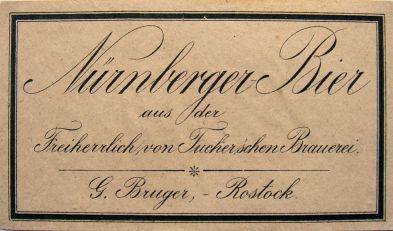 Nürnberger Bier
aus der
Freiherrlich, von Tucher'schen Brauerei.
G. Bruger, - Rostock.